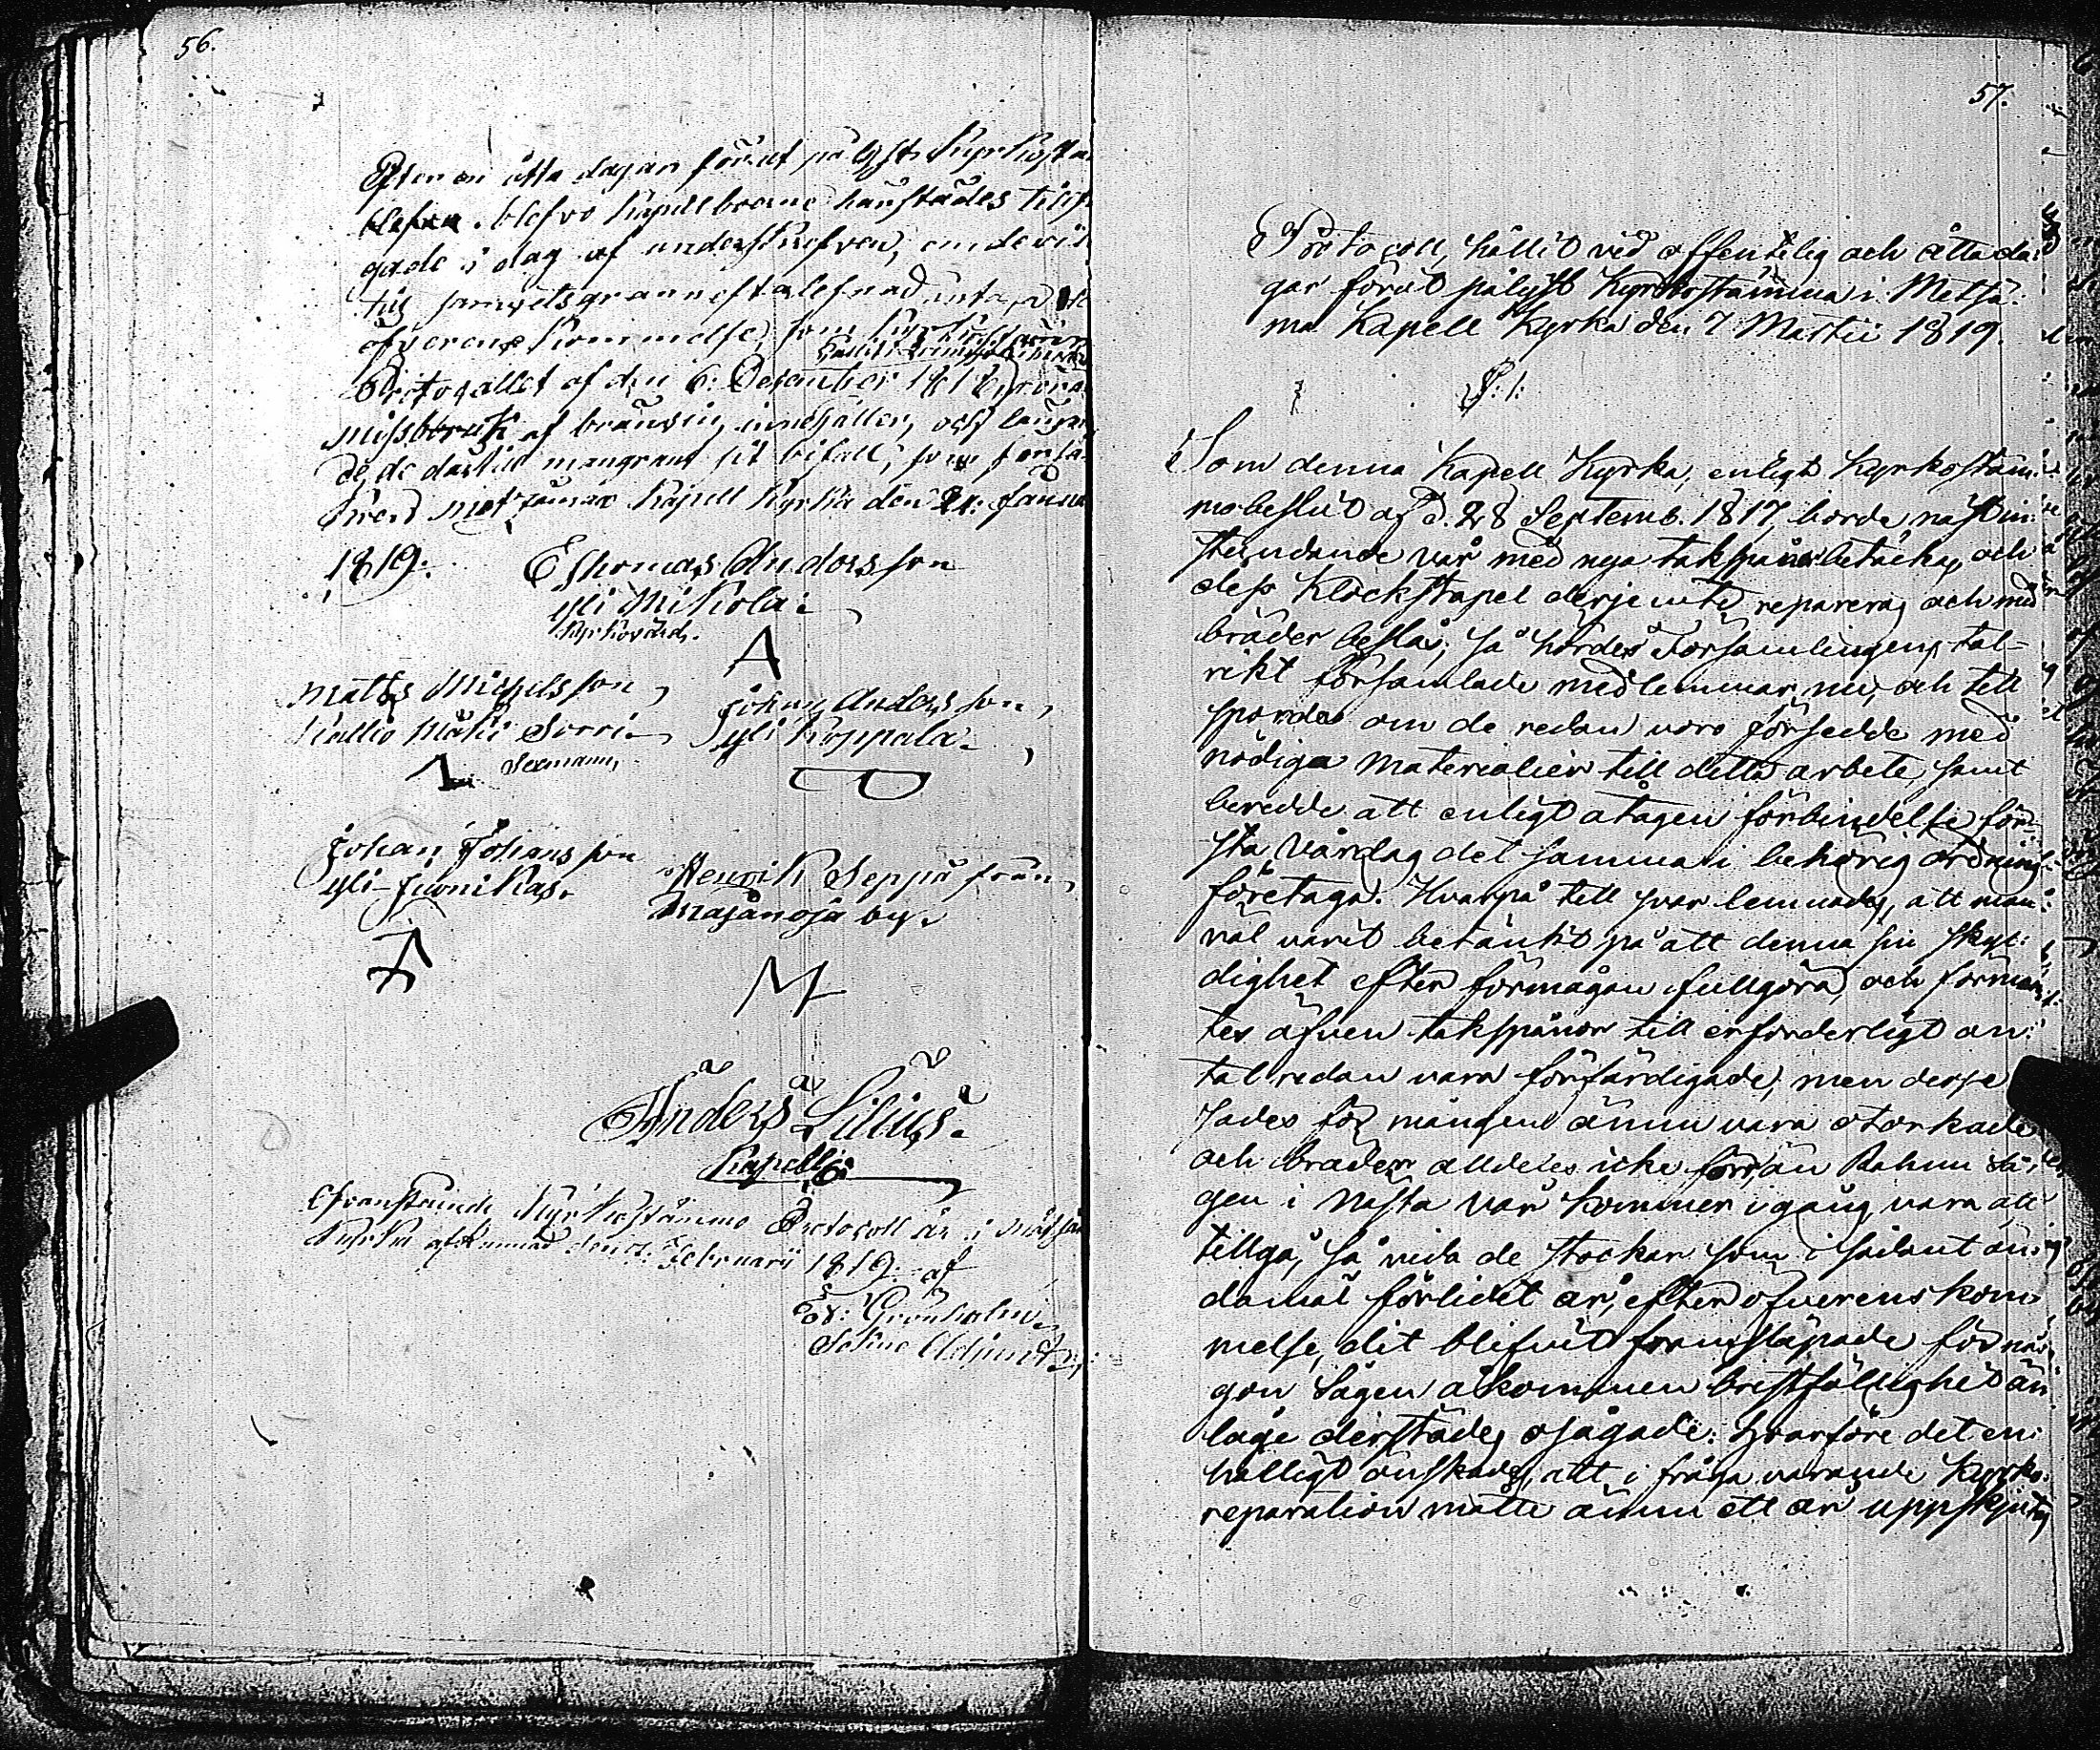 56.
Efter en åtta dagar förut pålyst Kyrkosta
blefvo Kapellboerne härstädes
gade i dag af underskrefven,
til samvetsgrann efterlefnad
öfverens kommelse, som Kyrko
Protocollet af den 6. December 1818,
missbruk af bränvin, innehåller, och
de de dertill mangrant sit bifall, som
Metsämar Kapell Kyrka den 24. Janua
1819.
Thomas Andersson
Yli Mikola
Kyrkovärd.
A
Matts Michelsson
Kallio Mäki Sorri
Sexmann,
Johan Andersson,
Yli Koppala
Johan Johansson
Yli-Junnikas.
Henrik Seppä från
Majanoja by.
M
Anders Lilius.
Kapell:
Ofvanstående Kyrkostämmo Protocoll är i
Kyrka afkunnad den 7. Februarii 1819. af
Gronholm
Adjunct,
57.
Protocoll, hållit vid offentelig och åtta da:
gar förut pålyst Kyrkostämma i Metsä:
ma Kapell Kyrka den 7 Martii 1819.
§. 1.
Som denna Kapell Kyrka, enligt Kyrkostäm:
mobeslut af d. 28 Septemb. 1817, borde nästin:
stundande vår med nya takspånor betäckas, och
dess Klockstapel derjemte repareras och med
bräder beslås; så hördes Församlingens tal-
rikt församlade medlemmar nu, och till
spordes om de redan voro försedde med
nödiga materialier till detta arbete, samt
beredde att enligt åtagen förbindelse för-
sta vårdag det samma i behörig ordning
företaga. Hvarpå till svar lemnades, att man
väl varit betänkt på att denna sin skyl:
dighet efter förmågan fullgöra, och förment
tes äfven takspånor till erforderligt an:
tal redan vara förfärdigade, men derje
sades för mången ännu vara otorkade
och bräder alldeles icke förr, än Rahm så
gen i nästa vår kommer i gång vara att
tillgå, så vida de stockar som i sådant än
damål förlidit år, efter öfverenskom
melse, dit blifvit framsläpade för nå
gon Sågen åkommen bristfällighet än
läge derstädes osågade. Hvarföre det en:
hälligt önskades, att i fråga varande Kyrko:
reparation måtte ännu ett år uppskjutas